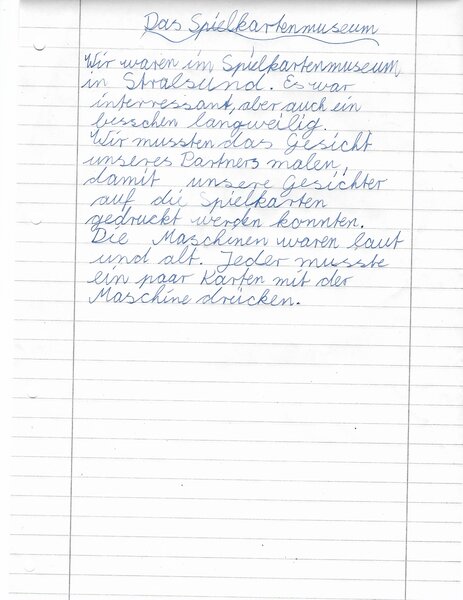 Das Spielkartenmuseum
Wir waren im Spielkartenmuseum
in Stralsund. Es war
interressant, aber auch ein
besschen langweilig.
Wir mussten das Gesicht
unseres Partners malen,
damit unsere Gesichter
auf die Spielkarten
gedruckt werden konnten.
Die Maschinen waren laut
und alt. Jeder musste
ein paar Karten mit der
Maschine drücken.